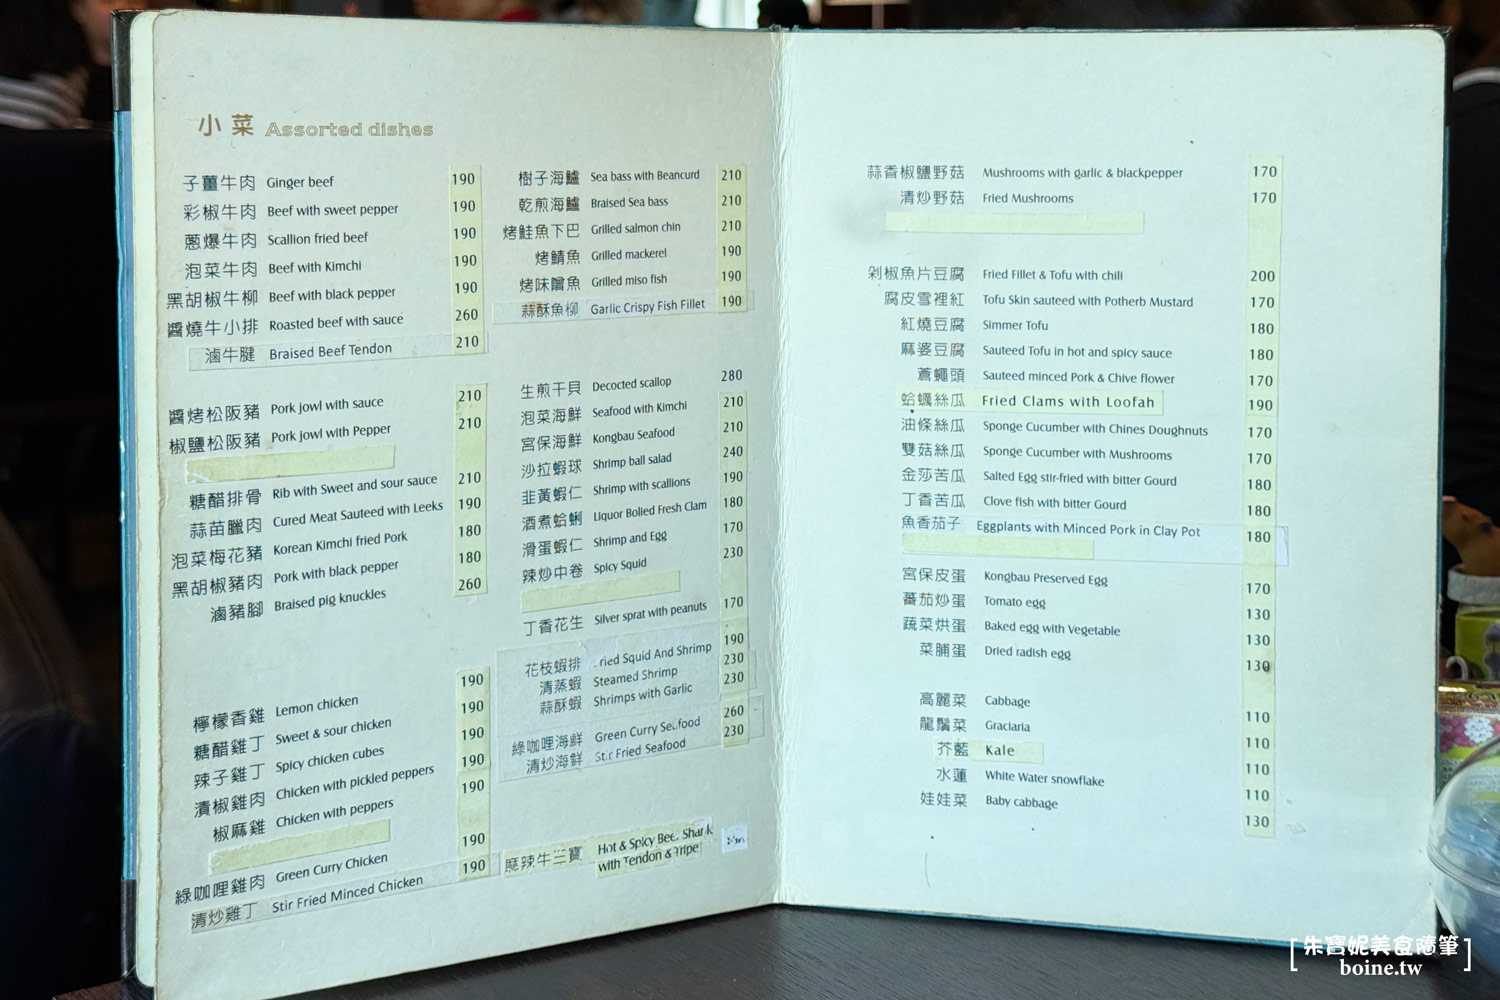 小菜 Assorted dishes
子薑牛肉 Ginger beef 190
彩椒牛肉 Beef with sweet pepper 190
蔥爆牛肉 Scallion fried beef 190
泡菜牛肉 Beef with Kimchi 190
黑胡椒牛柳 Beef with black pepper 190
醬燒牛小排 Roasted beef with sauce 260
滷牛腱 Braised Beef Tendon 210
醬烤松阪豬 Pork jowl with sauce 210
椒鹽松阪豬 Pork jowl with Pepper 210
糖醋排骨 Rib with Sweet and sour sauce 210
蒜苗臘肉 Cured Meat Sauteed with Leeks 190
泡菜梅花豬 Korean Kimchi fried Pork 180
黑胡椒豬肉 Pork with black pepper 180
滷豬腳 Braised pig knuckles 260
檸檬香雞 Lemon chicken 190
糖醋雞丁 Sweet & sour chicken 190
辣子雞丁 Spicy chicken cubes 190
漬椒雞肉 Chicken with pickled peppers 190
椒麻雞 Chicken with peppers 190
綠咖哩雞肉 Green Curry Chicken 190
清炒雞丁 Stir Fried Minced Chicken 190
樹子海鱸 Sea bass with Beancurd 210
乾煎海鱸 Braised Sea bass 210
烤鮭魚下巴 Grilled salmon chin 210
烤鯖魚 Grilled mackerel 190
烤味噌魚 Grilled miso fish 190
蒜酥魚柳 Garlic Crispy Fish Fillet 190
生煎干貝 Decocted scallop 280
泡菜海鮮 Seafood with Kimchi 210
宮保海鮮 Kongbau Seafood 210
沙拉蝦球 Shrimp ball salad 240
韭黃蝦仁 Shrimp with scallions 190
酒煮蛤蜊 Liquor Bolied Fresh Clam 180
滑蛋蝦仁 Shrimp and Egg 170
辣炒中卷 Spicy Squid 230
丁香花生 Silver sprat with peanuts 170
花枝蝦排 Fried Squid And Shrimp 190
清蒸蝦 Steamed Shrimp 230
蒜酥蝦 Shrimps with Garlic 230
綠咖哩海鮮 Green Curry Seafood 260
清炒海鮮 Stir Fried Seafood 230
麻辣牛三寶 Hot & Spicy Beef Shank
with Tendon & Tripe
蒜香椒鹽野菇 Mushrooms with garlic & blackpepper 170
清炒野菇 Fried Mushrooms 170
剁椒魚片豆腐 Fried Fillet & Tofu with chili 200
腐皮雪裡紅 Tofu Skin sauteed with Potherb Mustard 170
紅燒豆腐 Simmer Tofu 180
麻婆豆腐 Sauteed Tofu in hot and spicy sauce 180
蒼蠅頭 Sauteed minced Pork & Chive flower 170
蛤蠣絲瓜 Fried Clams with Loofah 190
油條絲瓜 Sponge Cucumber with Chines Doughnuts 170
雙菇絲瓜 Sponge Cucumber with Mushrooms 170
金莎苦瓜 Salted Egg stir-fried with bitter Gourd 180
丁香苦瓜 Clove fish with bitter Gourd 180
魚香茄子 Eggplants with Minced Pork in Clay Pot 180
宮保皮蛋 Kongbau Preserved Egg 170
蕃茄炒蛋 Tomato egg 130
蔬菜烘蛋 Baked egg with Vegetable 130
菜脯蛋 Dried radish egg 130
高麗菜 Cabbage 110
龍鬚菜 Graciaria 110
芥藍 Kale 110
水蓮 White Water snowflake 110
娃娃菜 Baby cabbage 130
[朱寶妮美食隨筆]
boine.tw